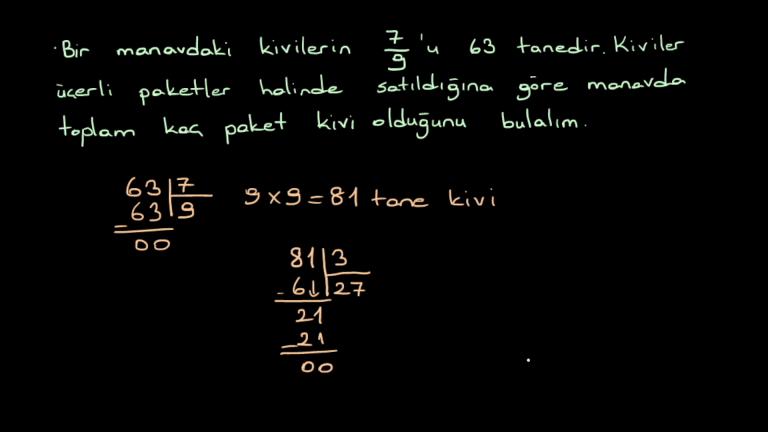 · Bir manavdaki kivilerin 7/9 'u 63 tanedir. Kiviler
üçerli paketler halinde satıldığına göre manavda
toplam kaç paket kivi olduğunu bulalım.
63 | 7
- 63 | 9
00
9 x 9 = 81 tane kivi
81 | 3
- 6↓ | 27
21
- 21
00